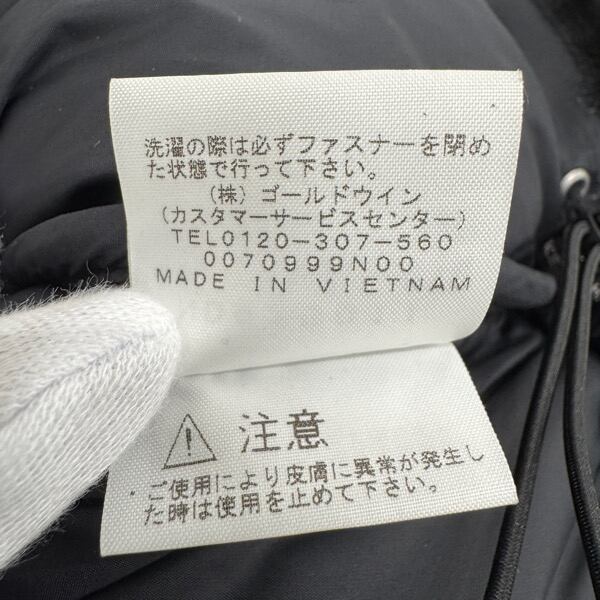 洗濯の際は必ずファスナーを閉め
た状態で行って下さい。
(株) ゴールドウイン
(カスタマーサービスセンター)
TEL0120-307-560
0070999N00
MADE IN VIETNAM
注意
ご使用により皮膚に異常が発生し
た時は使用を止めて下さい。